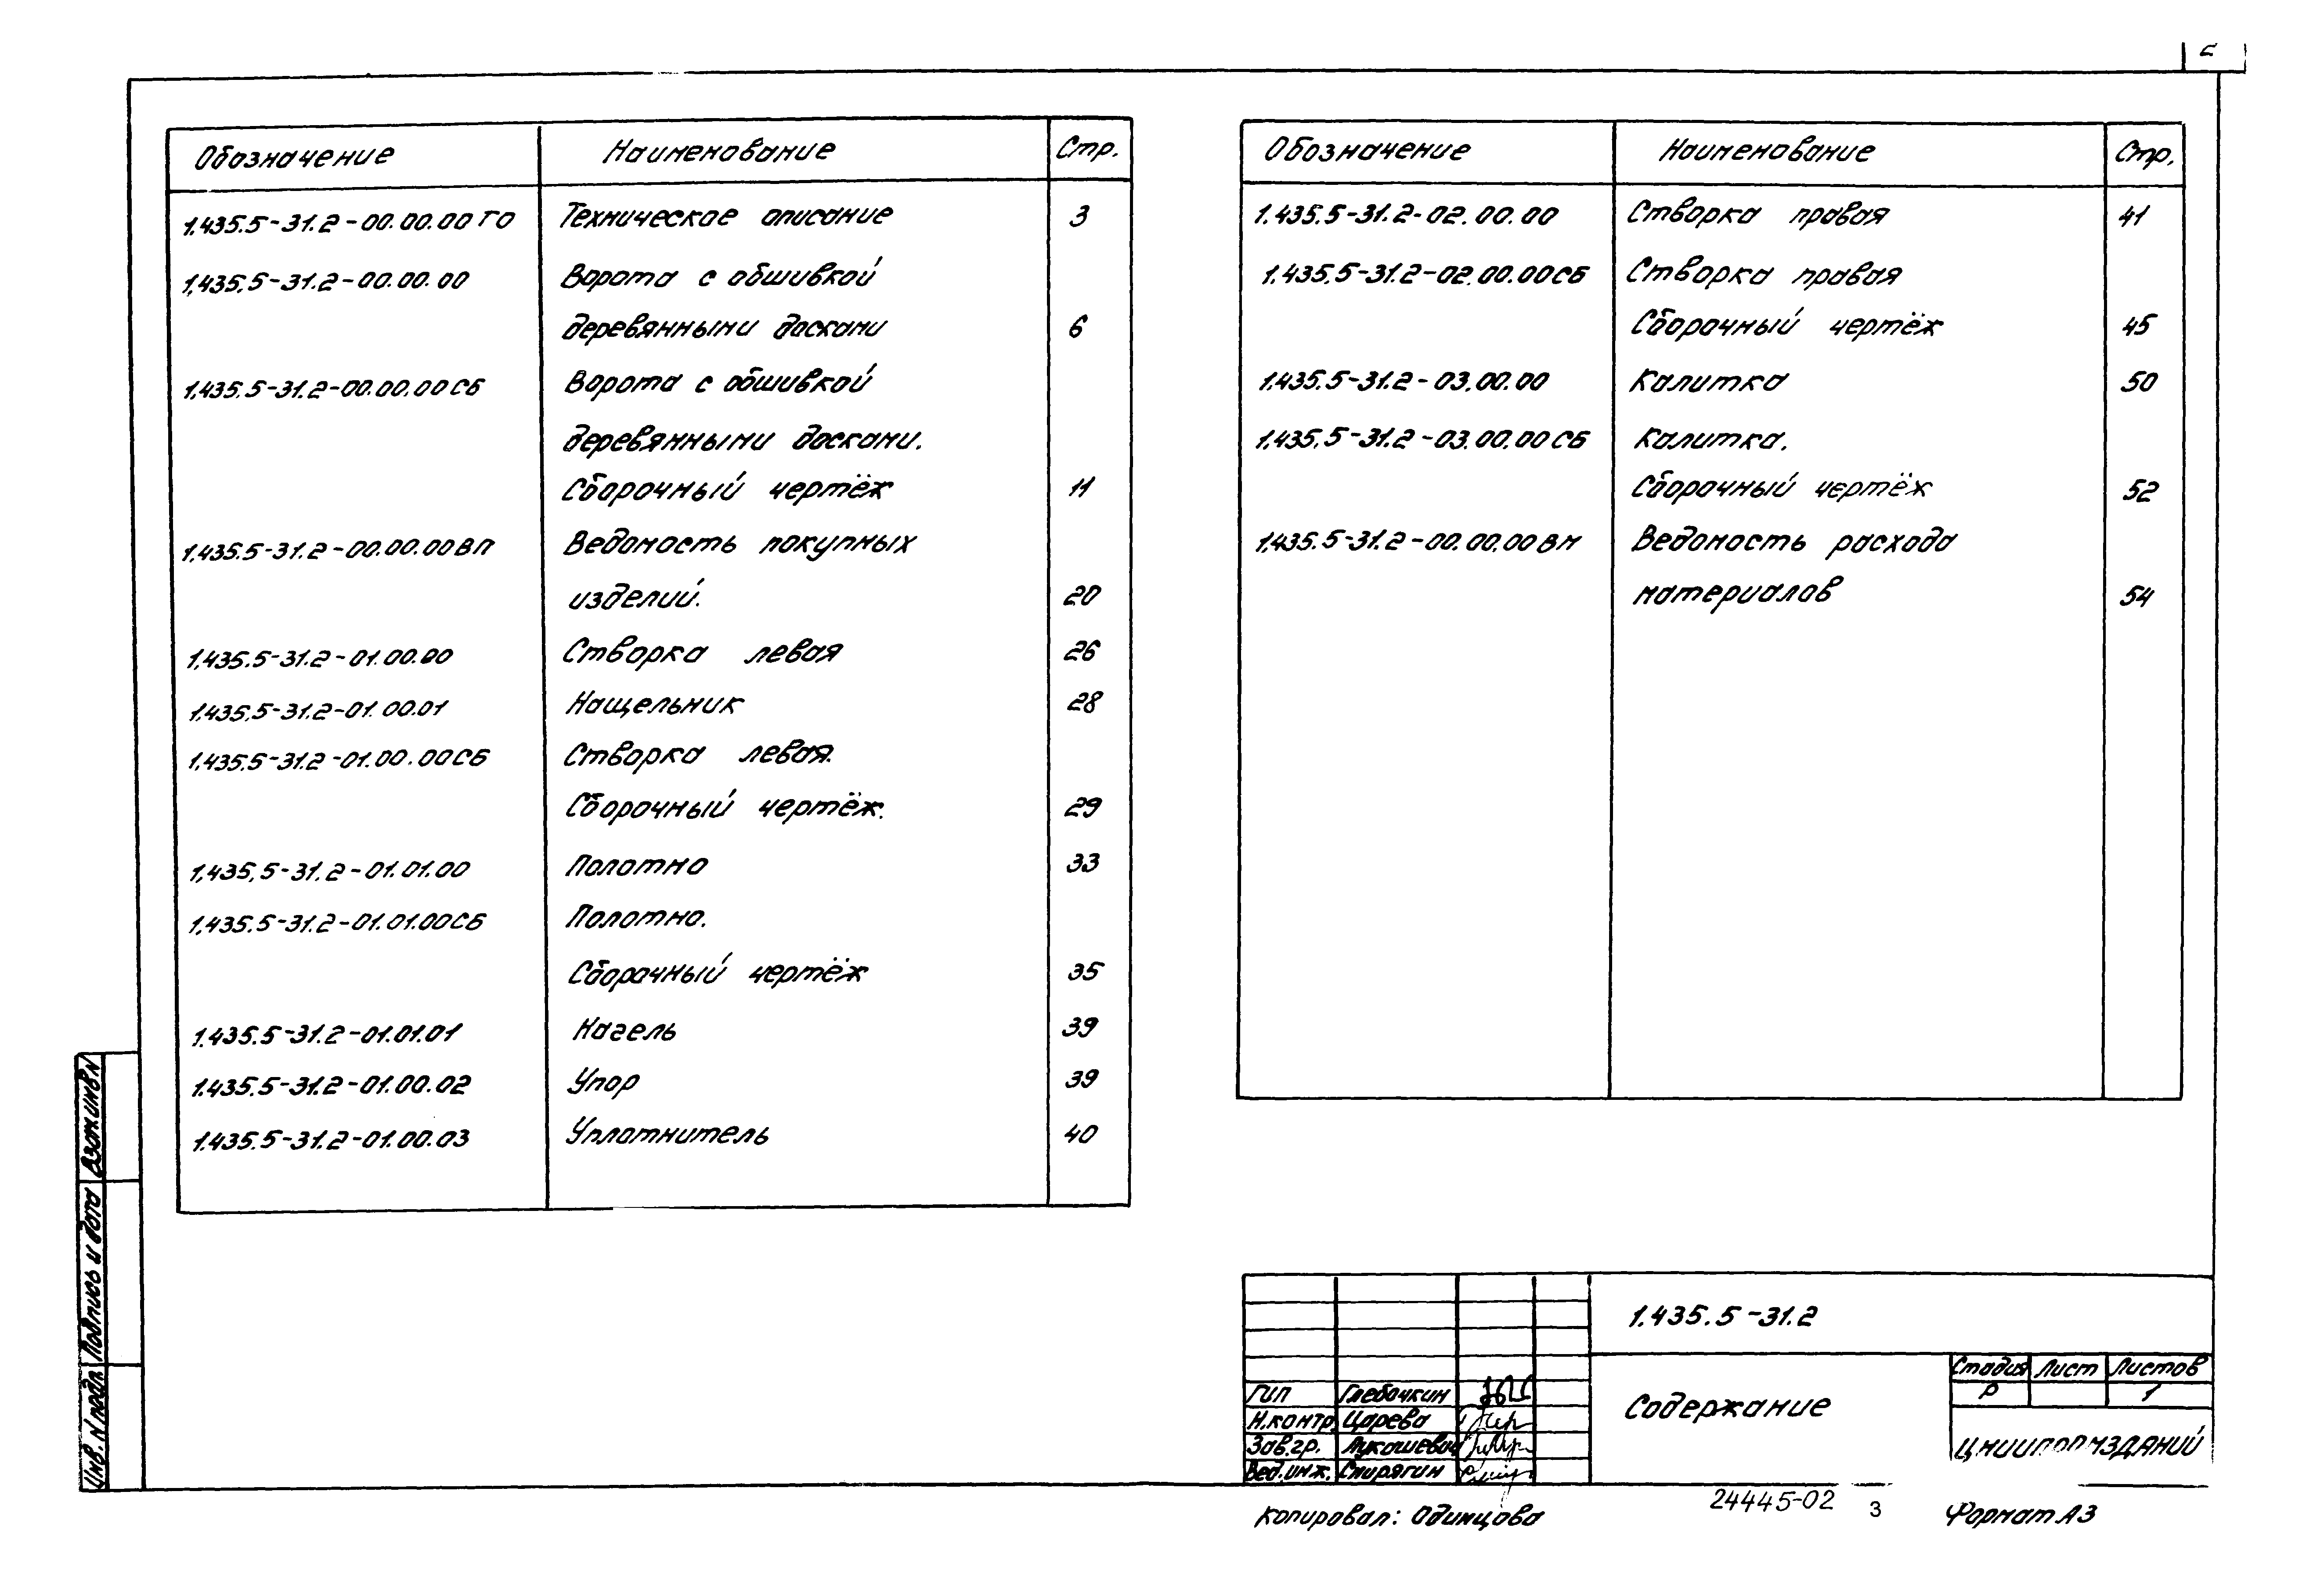 2
Обозначение Наименование Стр.
1.435.5-31.2-00.00.00 ТО Техническое описание 3
1.435.5-31.2-00.00.00 Ворота с обшивкой
деревянными досками 6
1.435.5-31.2-00.00.00 СБ Ворота с обшивкой
деревянными досками.
Сборочный чертёж 11
1.435.5-31.2-00.00.00 ВП Ведомость покупных
изделий. 20
1.435.5-31.2-01.00.00 Створка левая 26
1.435.5-31.2-01.00.01 Нащельник 28
1.435.5-31.2-01.00.00 СБ Створка левая.
Сборочный чертёж. 29
1.435.5-31.2-01.01.00 Полотно 33
1.435.5-31.2-01.01.00 СБ Полотно.
Сборочный чертёж 35
1.435.5-31.2-01.01.01 Нагель 39
1.435.5-31.2-01.00.02 Упор 39
1.435.5-31.2-01.00.03 Уплотнитель 40
Обозначение Наименование Стр.
1.435.5-31.2-02.00.00 Створка правая 41
1.435.5-31.2-02.00.00 СБ Створка правая
Сборочный чертёж 45
1.435.5-31.2-03.00.00 Калитка 50
1.435.5-31.2-03.00.00 СБ Калитка.
Сборочный чертёж 52
1.435.5-31.2-00.00.00 ВМ Ведомость расхода
материалов 54
Инв. N подл Подпись и дата Взам. инв N
1.435.5-31.2
Содержание
Стадия Лист Листов
Р 1
ЦНИИПРОМЗДАНИЙ
ГИП Глебочкин
Н.контр. Царева
Зав.гр. Лукашевич
Вед.инж. Спирягин
Копировал: Одинцова 24445-02 3 Формат А3